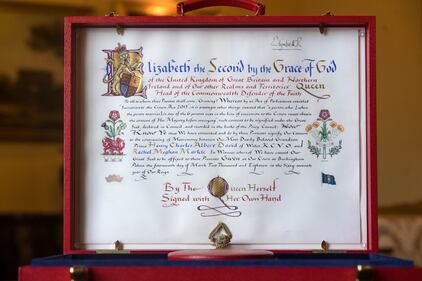 Elizabeth R
Elizabeth the Second by the Grace of God
of the United Kingdom of Great Britain and Northern
Ireland and of Our other Realms and Territories Queen
Head of the Commonwealth Defender of the Faith
To all to whom these Presents shall come Greeting! Whereas by an Act of Parliament entitled
Succession to the Crown Act 2013 it is amongst other things enacted that a person who (when
the person marries) is one of the 6 persons next in the line of succession to the Crown must obtain
the consent of Her Majesty before marrying such consent to be signified under the Great
Seal, declared in Council, and recorded in the books of the Privy Council: Now
Know Ye that We have consented and do by these Presents signify Our Consent
to the contracting of Matrimony between Our Most Dearly Beloved Grandson
Prince Henry Charles Albert David of Wales K.C.V.O. and
Rachel Meghan Markle In Witness whereof We have caused Our
Great Seal to be affixed to these Presents Given at Our Court at Buckingham
Palace the fourteenth day of March Two thousand and Eighteen in the Sixty-seventh
year of Our Reign
By The Queen Herself
Signed with Her Own Hand